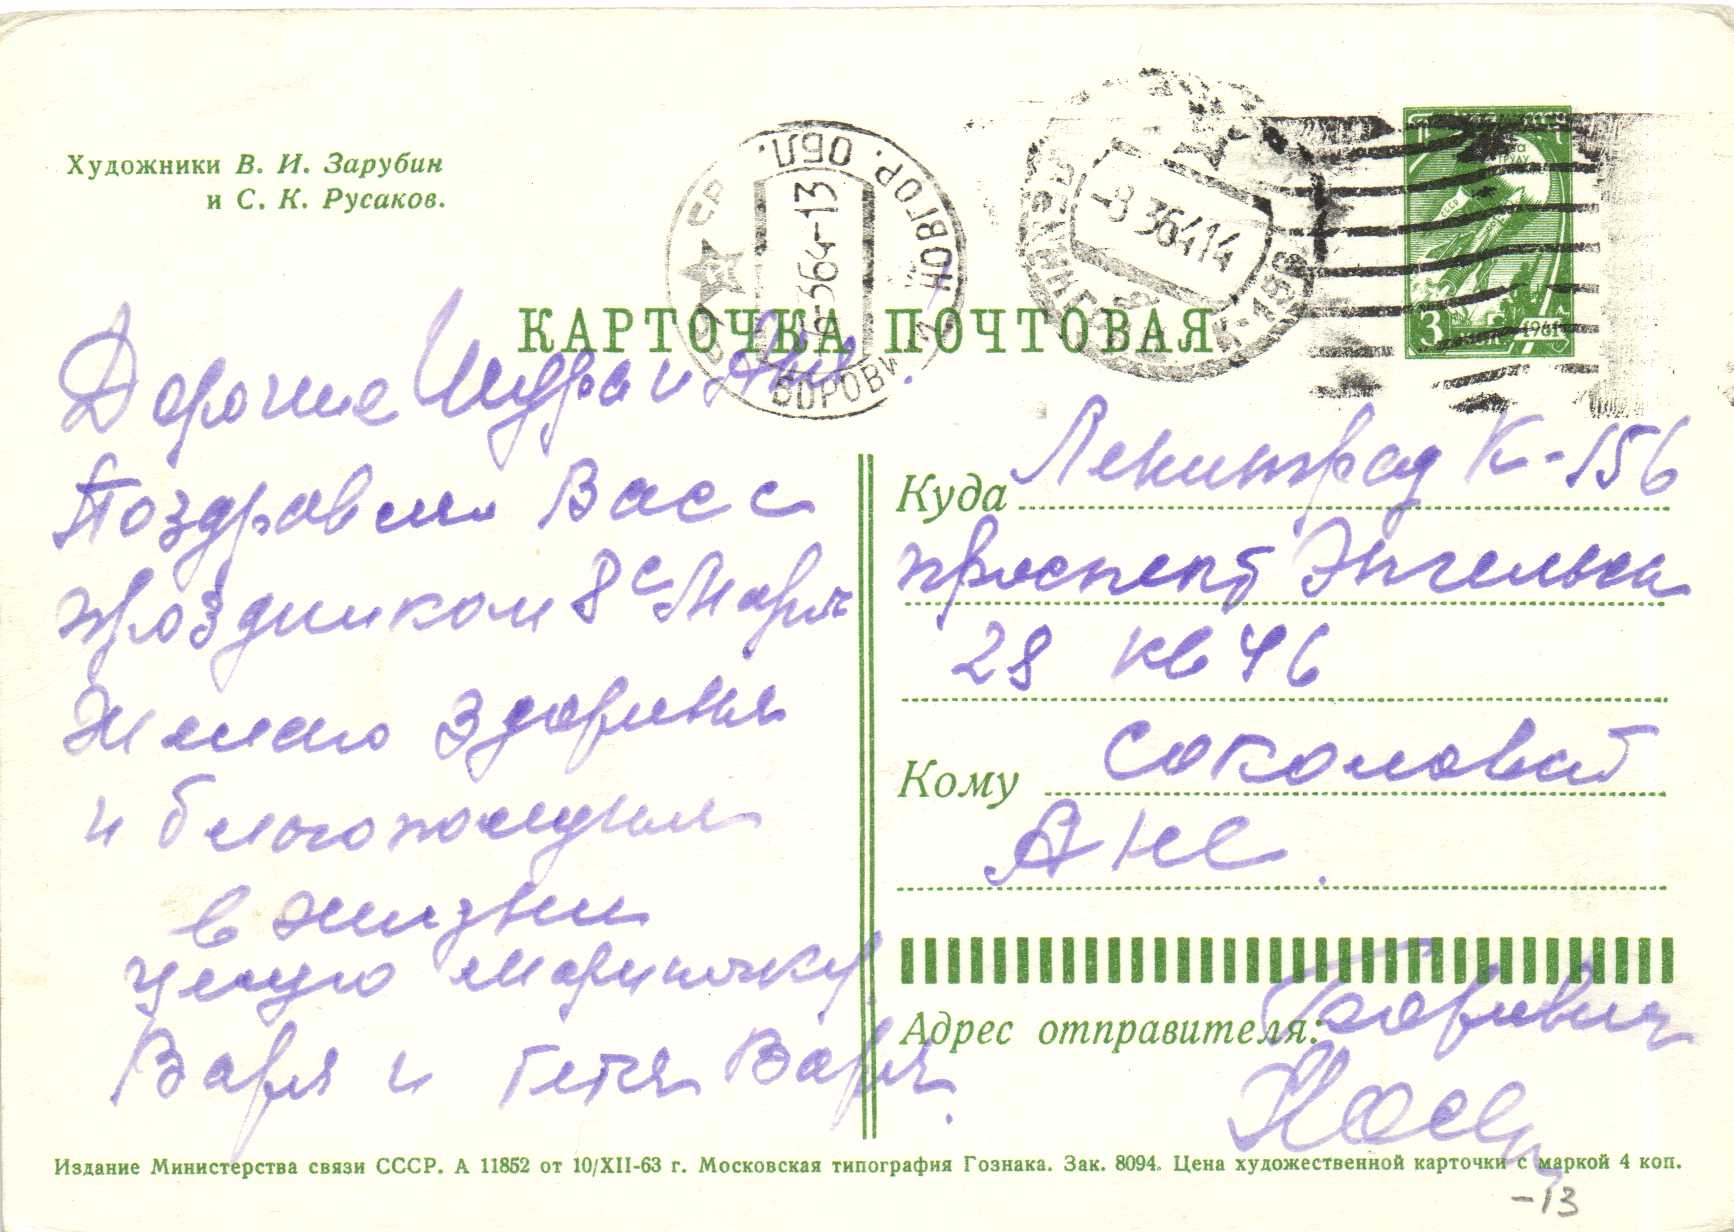 Художники В. И. Зарубин
и С. К. Русаков.
НОВГОР. ОБЛ.
БОРОВИ
-8 36414
ЛЕНИНГРАД
3
1961
КАРТОЧКА ПОЧТОВАЯ
Дорогие Шура и Аня.
Поздравляю Вас с
праздником 8е Марта
Желаю здоровья
и благополучия
в жизни
целую Мариночку.
Варя и тетя Варя.
Куда Ленинград К-156
проспект Энгельса
28 кв 46
Кому Соколовой
Ане.
Адрес отправителя: Боровичи
Издание Министерства связи СССР. А 11852 от 10/XII-63 г. Московская типография Гознака. Зак. 8094. Цена художественной карточки с маркой 4 коп.
-13